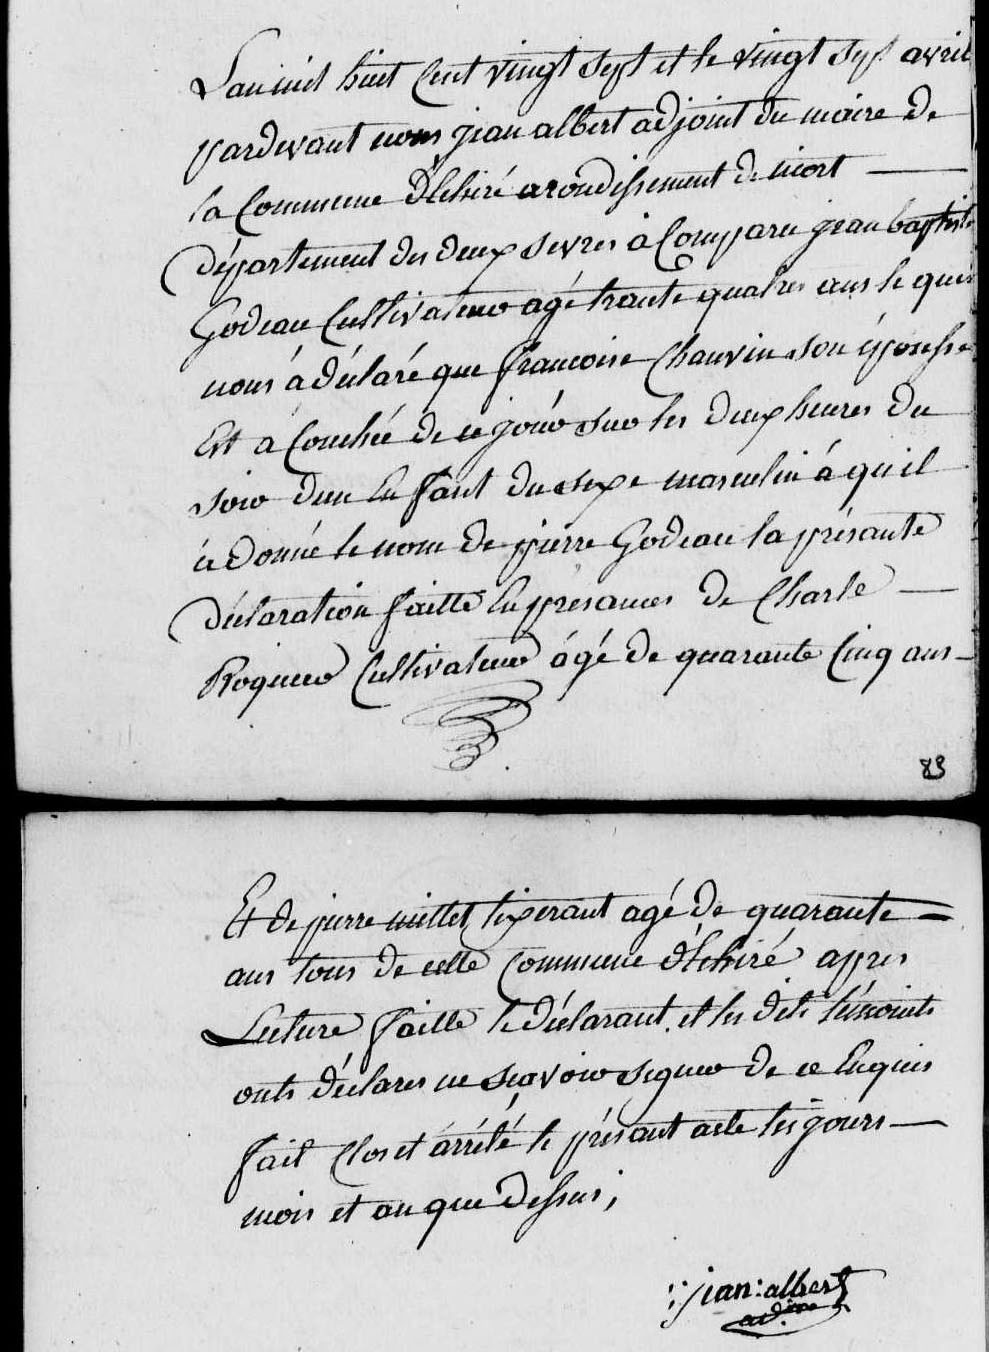 L'an mil huit Cent vingt sept et le vingt sept avril
pardevant nous jean albert adjoint du maire de
la Commune d'Echiré arondissement de niort
département des deux sevres à Comparu jean baptiste
Godeau Cultivateur agé trante quatres ans le quel
nous à déclaré que francoise Chauvin son épousse
Est à Couchée de ce jour sur les deux heures du
soir d'un Enfant du sexe masculin à qu'il
à donné le nom de pierre Godeau la présante
déclaration faitte En présances de Charle
Proqueur Cultivateur ágé de quarante Cinq ans
83
Et de pierre millet tixerant agé de quarante =
ans tous de cette Commune d'Echiré appres
Lecture faitte le déclarant et les dits témoints
onts déclares ne sçavoir signer de ce Enquis
fait Clos et árrêté le présant acte les jours
mois et an que dessus;
jean : albert
adj.